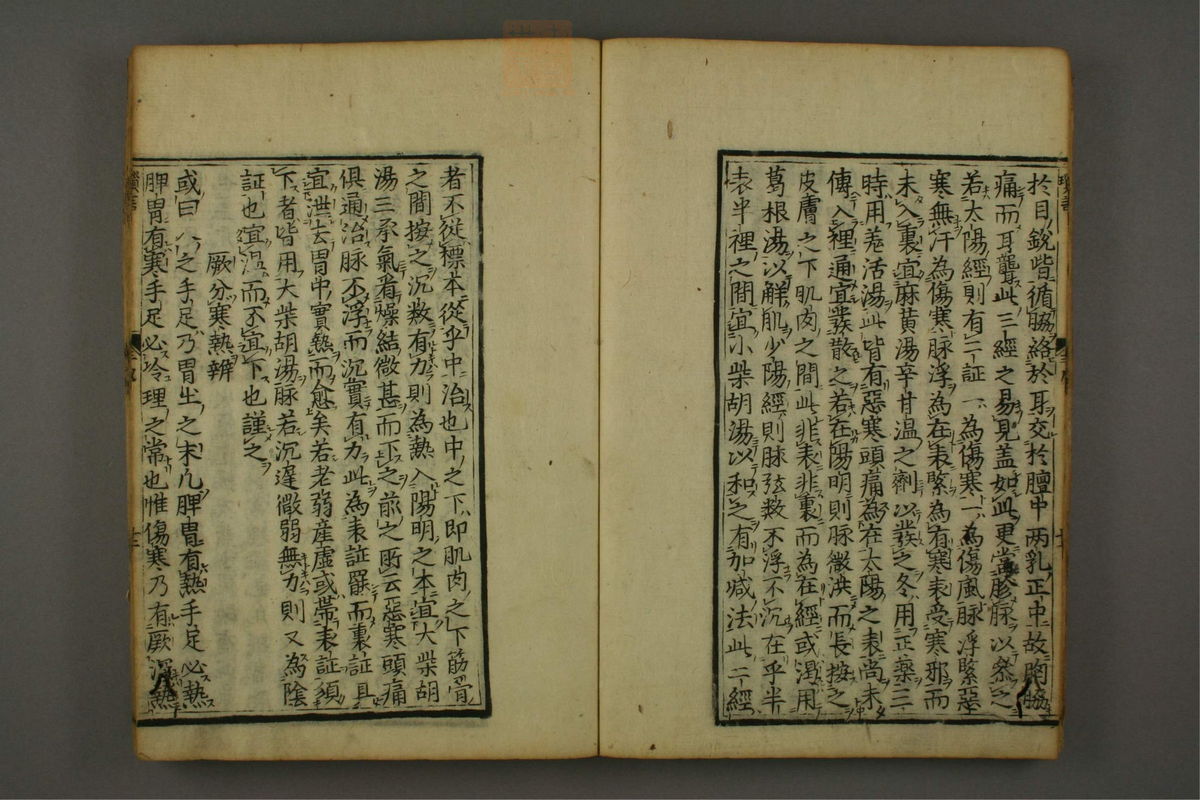 於目銳眥循脇絡於耳交於膻中両乳正中故胸脇
痛而耳聾此三經之易見盖如此更當診脉以祭之
若太陽經則有二証一為傷寒一為傷風脉浮緊惡
寒無汗為傷寒脉浮為在表緊為有寒表受寒邪而
未入裏宜麻黄湯辛甘温之劑以發之冬用正藥三
時用羗活湯此皆有惡寒頭痛為在太陽之表尚未
傳入裡通宜發散之若在陽明則脉微洪而長按之
皮膚之下肌肉之間此非表非裏而為在經或渇用
葛根湯以觧肌少陽經則脉弦数不浮不沉在乎半
表半裡之間宜小柴胡湯以和之有加减法此二經
者不從標本從乎中治也中之下即肌肉之下筋骨
之間按之沉数有力則為熱入陽明之本宜大柴胡
湯三承氣看燥結微甚而下之前之所云惡寒頭痛
俱通治脉不浮而沉實有力此為表証罷而裏証具
宜泄去胃中實熱而愈矣若老弱産虚或帶表証須
下者皆用大柴胡湯脉若沉遅微弱無力則又為陰
証也宜温而不宜下也謹之
厥分寒熱辨
或曰人之手足乃胃土之末凡脾胃有熱手足必熱
脾胃有寒手足必冷理之常也惟傷寒乃有厥深熱